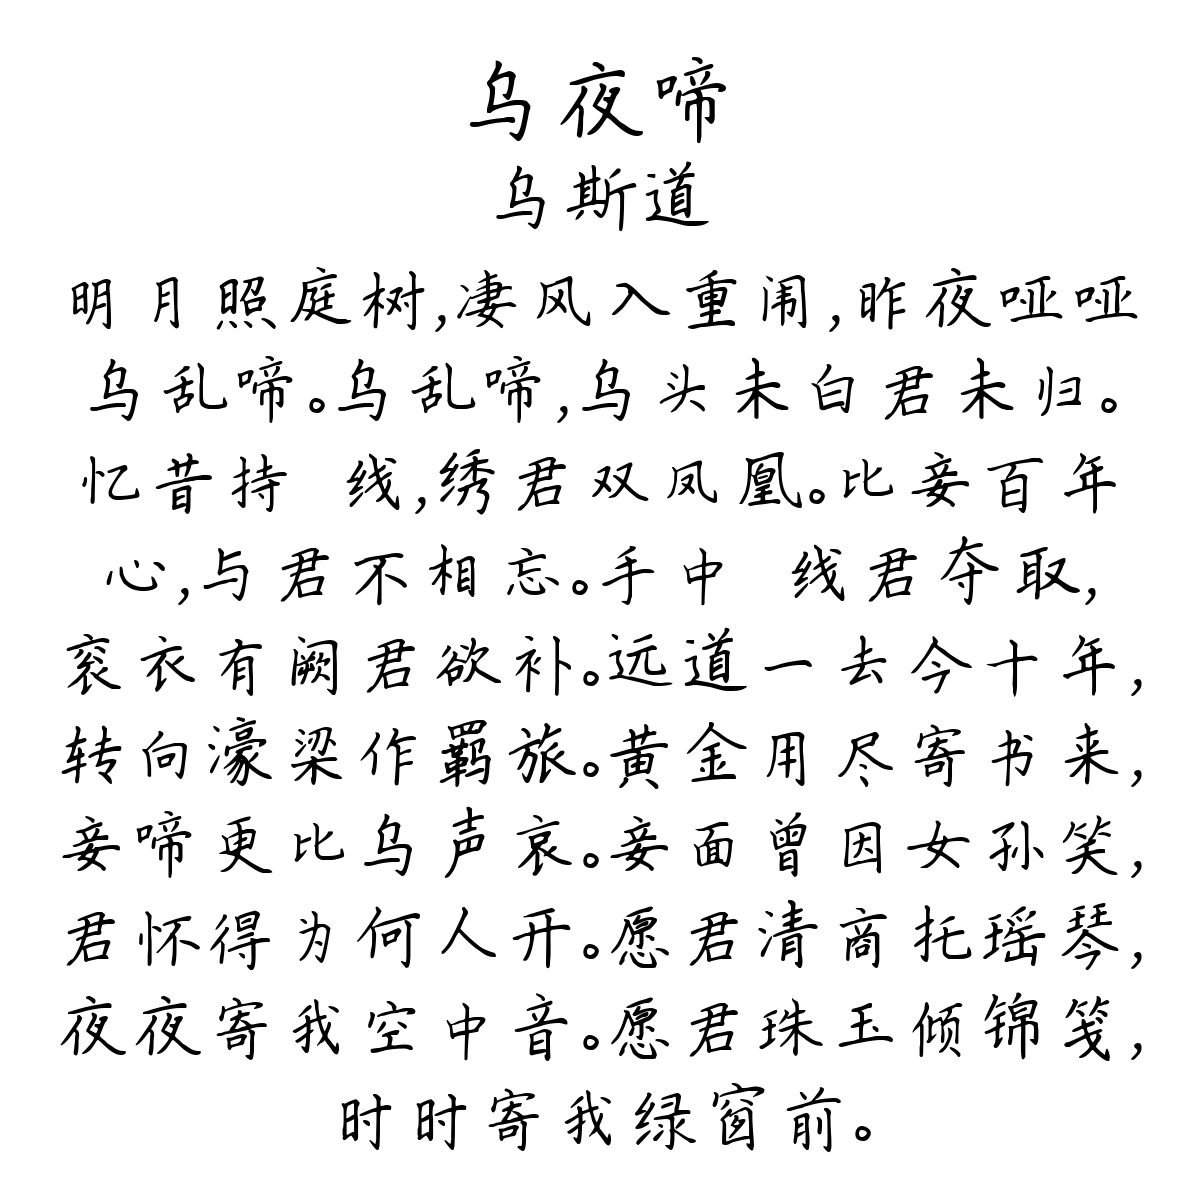 乌夜啼
乌斯道
明月照庭树,凄风入重闱,昨夜哑哑
乌乱啼。乌乱啼,乌头未白君未归。
忆昔持 线,绣君双凤凰。比妾百年
心,与君不相忘。手中 线君夺取,
衮衣有阙君欲补。远道一去今十年,
转向濠梁作羁旅。黄金用尽寄书来,
妾啼更比乌声哀。妾面曾因女孙笑,
君怀得为何人开。愿君清商托瑶琴,
夜夜寄我空中音。愿君珠玉倾锦笺,
时时寄我绿窗前。